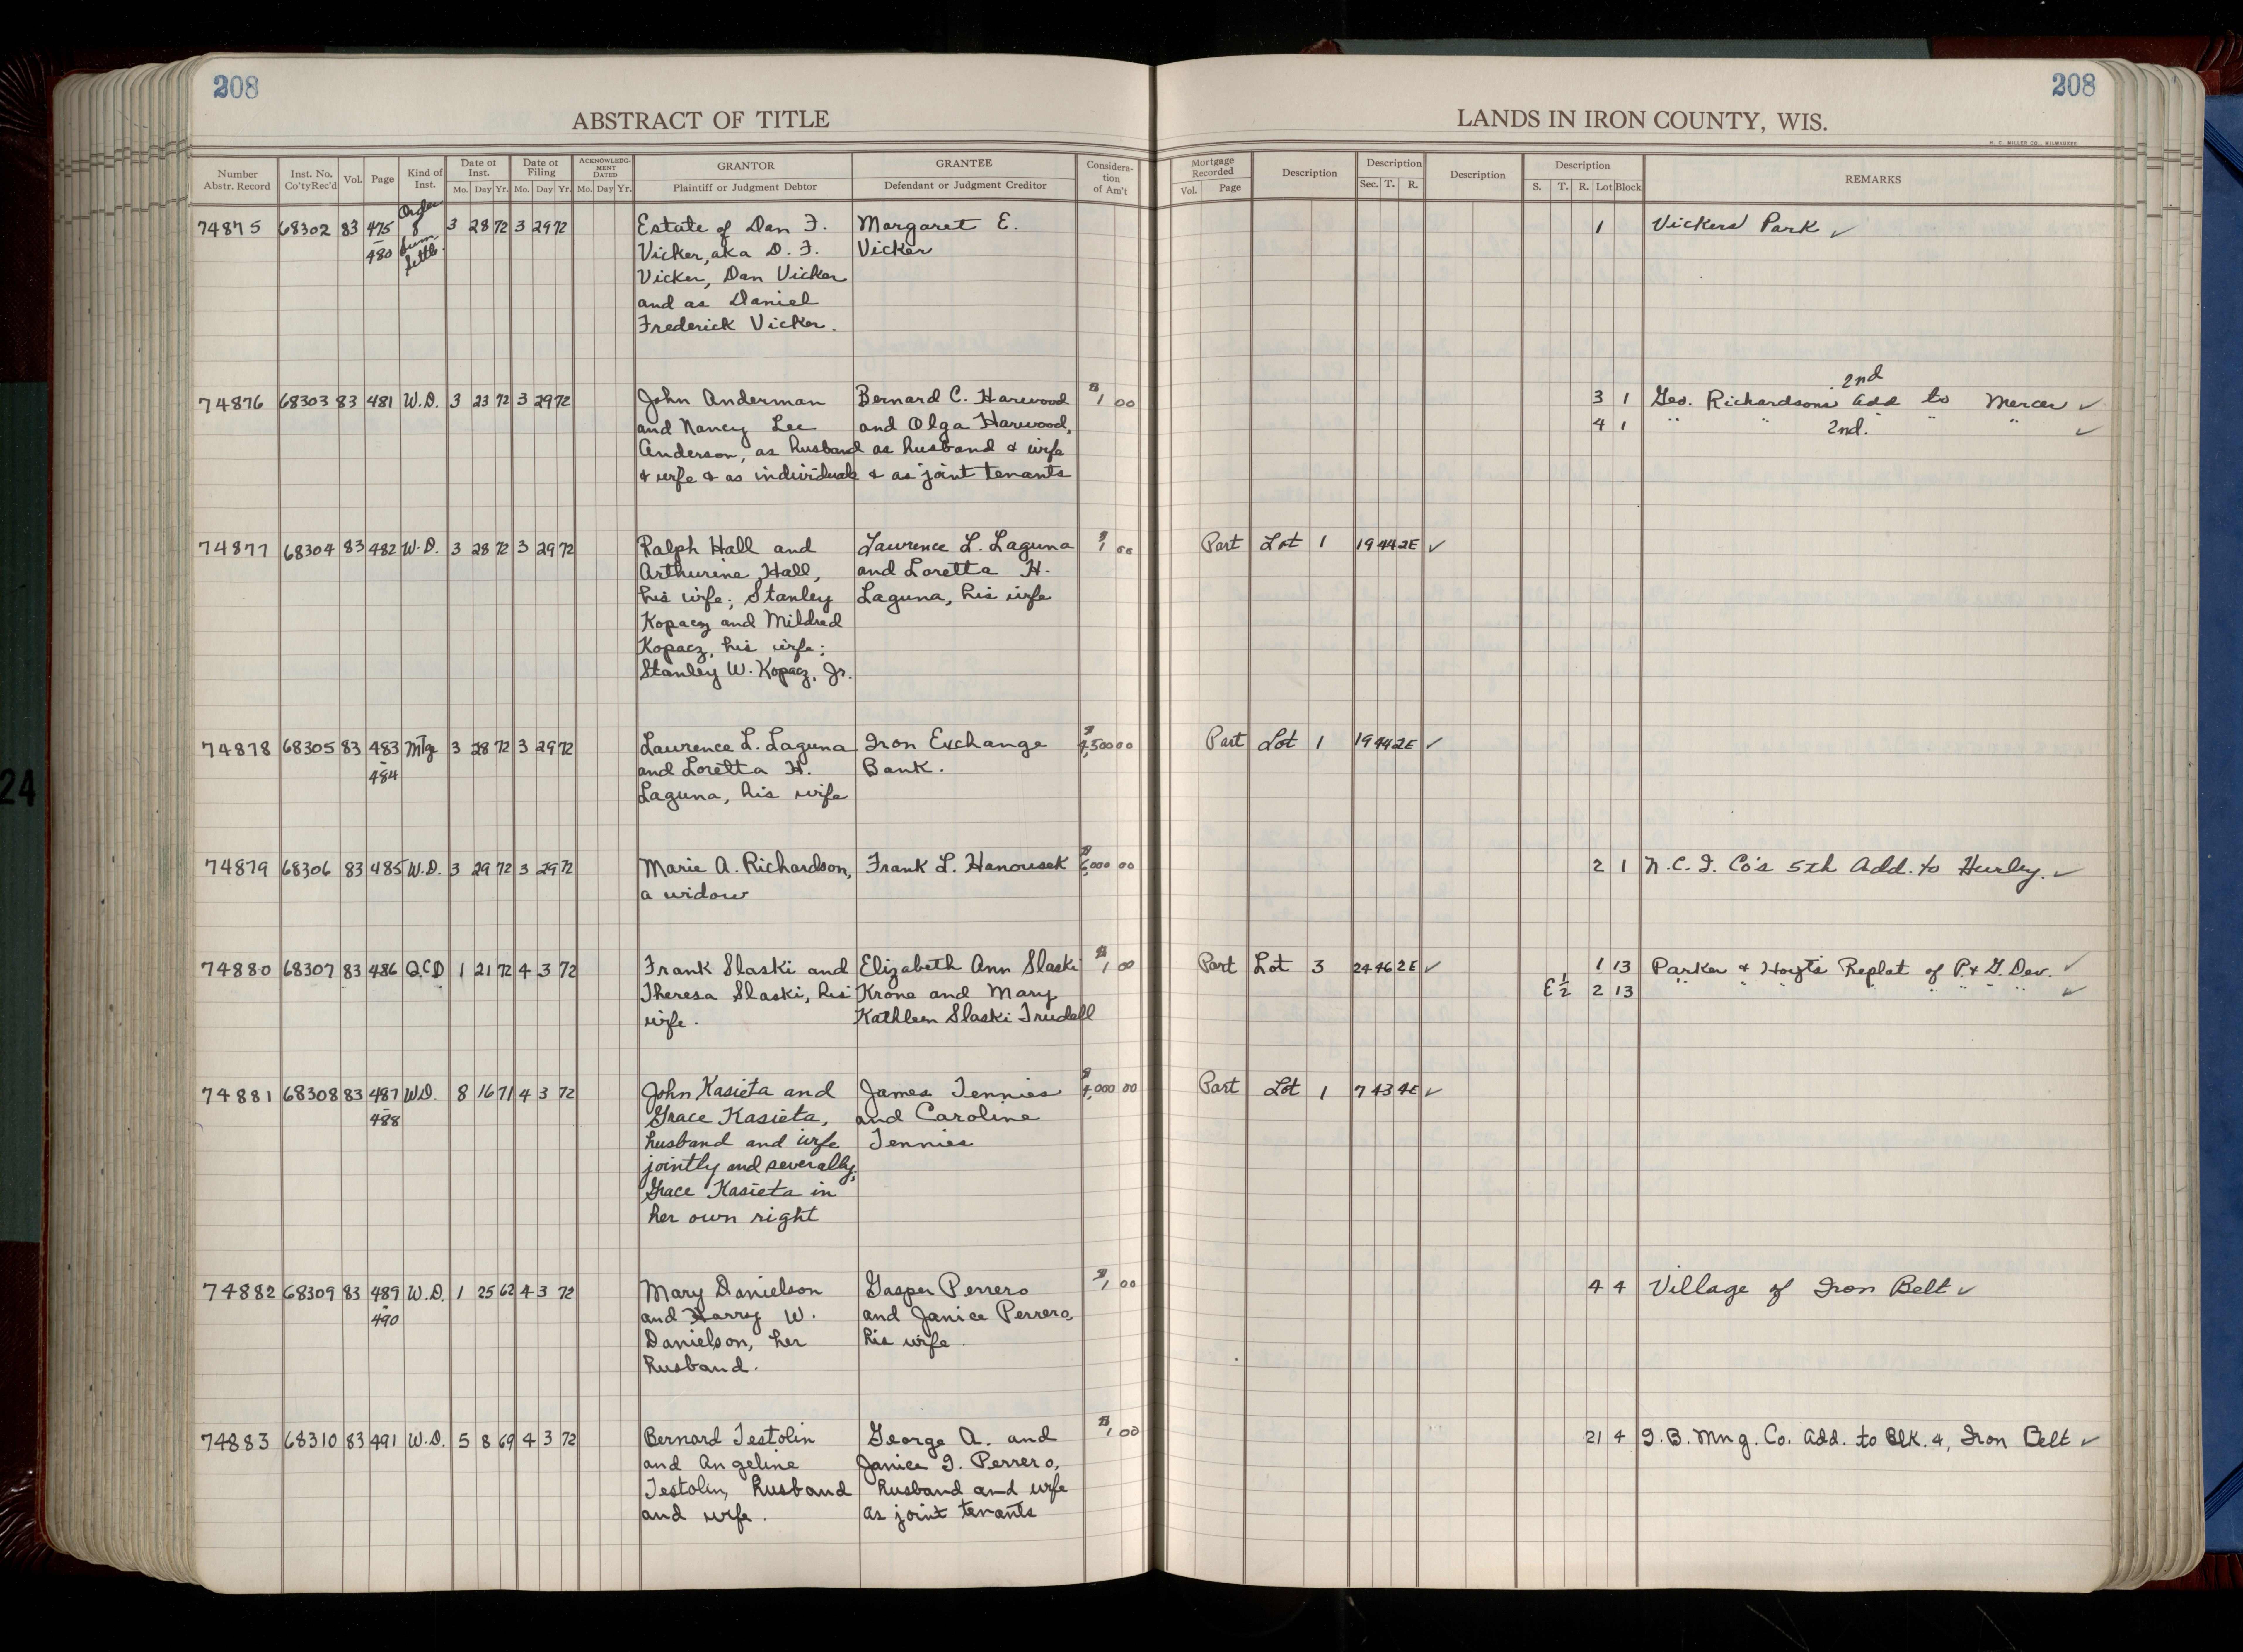 208
208
ABSTRACT OF TITLE
LANDS IN IRON COUNTY, WIS.
H. C. MILLER CO., MILWAUKEE
Number Abstr. Record | Inst. No. Co'ty Rec'd | Vol. | Page | Kind of Inst. | Date of Inst. Mo. Day Yr. | Date of Filing Mo. Day Yr. | ACKNOWLEDGMENT DATED Mo. Day Yr. | GRANTOR Plaintiff or Judgment Debtor | GRANTEE Defendant or Judgment Creditor | Consideration of Am't | Mortgage Recorded Vol. Page | Description | Description Sec. T. R. | Description | Description S. T. R. Lot Block | REMARKS
74875 68302 83 475 Order 3 28 72 3 29 72 Estate of Dan F. Margaret E. 1 Vickers Park ✓
- 480 Sum. Settle. Vicker, aka D. F. Vicker
Vicker, Dan Vicker
and as Daniel
Frederick Vicker.
2nd
74876 68303 83 481 W.D. 3 23 72 3 29 72 John Anderman Bernard C. Harwood $1 00 3 1 Geo. Richardsons Add to Mercer ✓
and Nancy Lee and Olga Harwood, 4 1 " " 2nd. " " " ✓
Anderson, as husband as husband & wife
& wife & as individuals & as joint tenants
74877 68304 83 482 W.D. 3 28 72 3 29 72 Ralph Hall and Lawrence L. Laguna $1 00 Part Lot 1 19 44 2E ✓
Arthurine Hall, and Loretta H.
his wife; Stanley Laguna, his wife
Kopacz and Mildred
Kopacz, his wife;
Stanley W. Kopacz, Jr.
74878 68305 83 483 Mtge 3 28 72 3 29 72 Lawrence L. Laguna Iron Exchange $4,500 00 Part Lot 1 19 44 2E ✓
- 484 and Loretta H. Bank.
Laguna, his wife
74879 68306 83 485 W.D. 3 29 72 3 29 72 Marie A. Richardson, Frank L. Hanousek $6,000 00 2 1 N.C.I. Co's 5th Add. to Hurley. ✓
a widow
74880 68307 83 486 Q.C.D. 1 21 72 4 3 72 Frank Slaski and Elizabeth Ann Slaski $1 00 Part Lot 3 24 46 2E ✓ 1 13 Parker & Hoyts Replat of P. & G. Dev. ✓
Theresa Slaski, his Krone and Mary E½ 2 13 " " " " " " " " ✓
wife. Kathleen Slaski Trudell
74881 68308 83 487 W.D. 8 16 71 4 3 72 John Kasieta and James Tennies $4,000 00 Part Lot 1 7 43 4E ✓
- 488 Grace Kasieta, and Caroline
husband and wife Tennies
jointly and severally;
Grace Kasieta in
her own right
74882 68309 83 489 W.D. 1 25 62 4 3 72 Mary Danielson Gasper Perrero $1 00 4 4 Village of Iron Belt ✓
- 490 and Harry W. and Janice Perrero,
Danielson, her his wife.
husband.
74883 68310 83 491 W.D. 5 8 69 4 3 72 Bernard Testolin George A. and $1 00 21 4 I.B. Mng. Co. Add. to Blk. 4, Iron Belt ✓
and Angeline Janice I. Perrero,
Testolin, husband husband and wife
and wife. as joint tenants
24